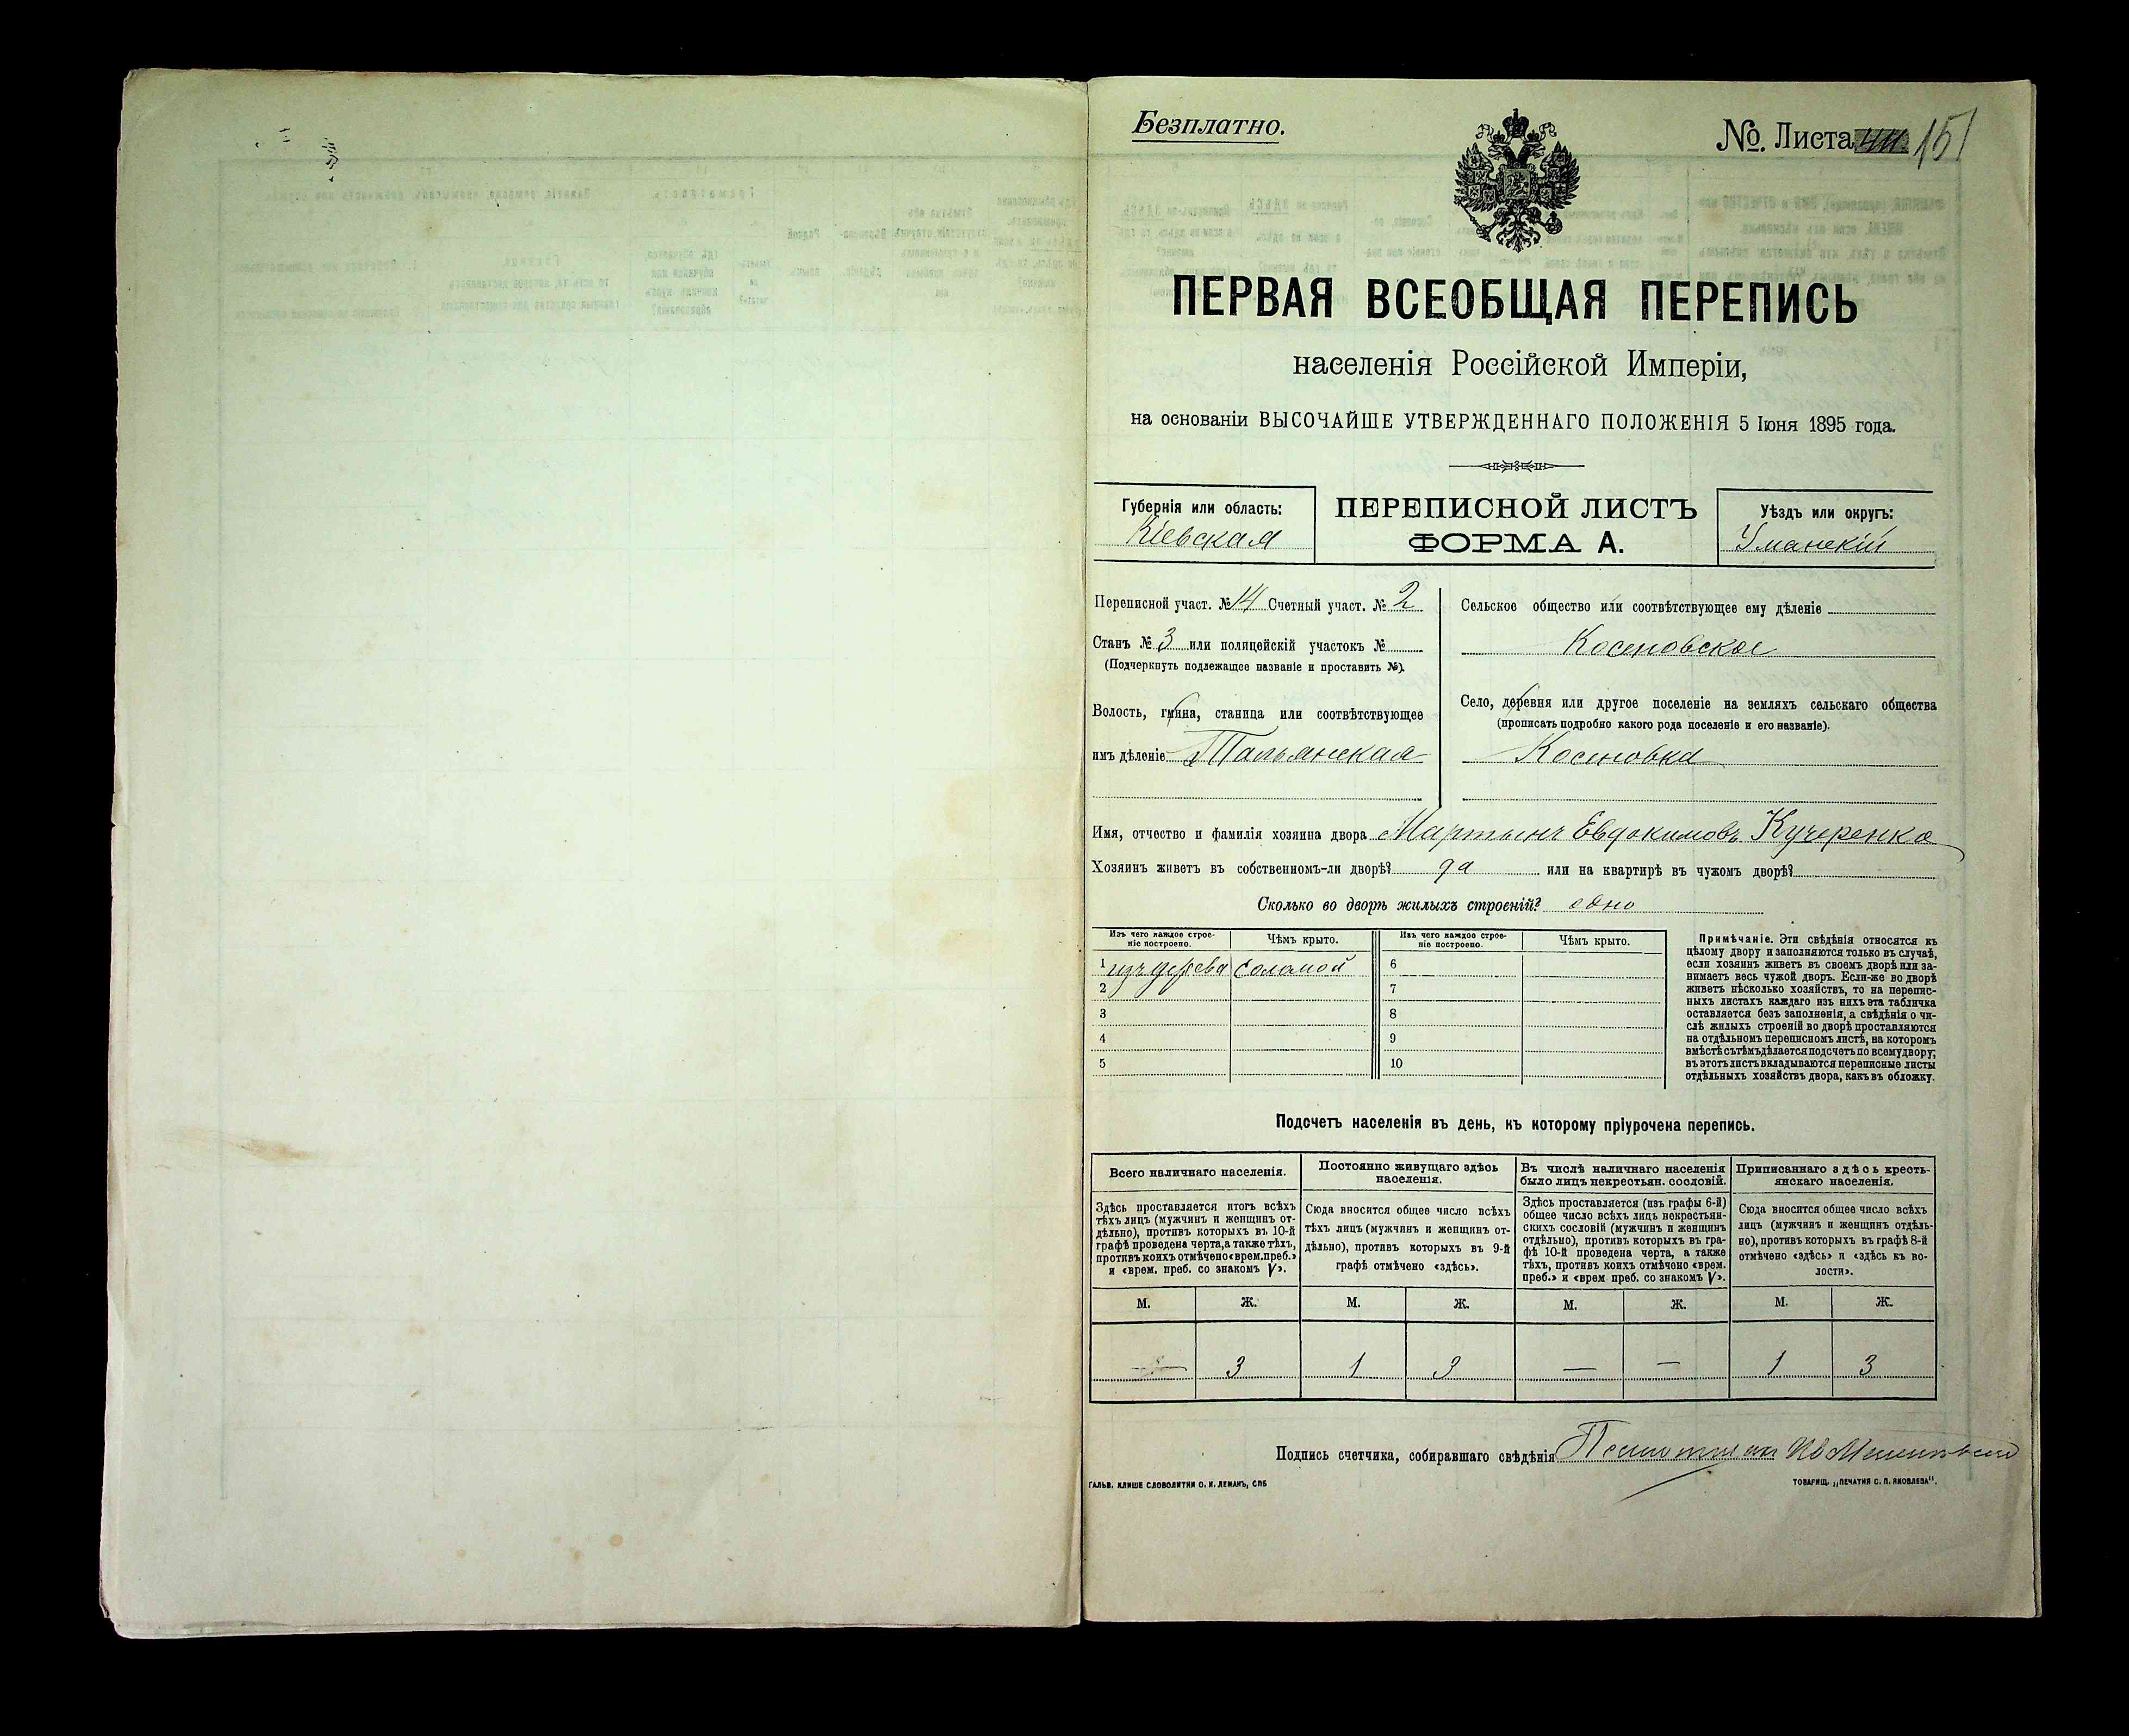 Безплатно.
№. Листа 151
ПЕРВАЯ ВСЕОБЩАЯ ПЕРЕПИСЬ
населенія Россійской Имперіи,
на основаніи ВЫСОЧАЙШЕ УТВЕРЖДЕННАГО ПОЛОЖЕНІЯ 5 Іюня 1895 года.
Губернія или область:
Кіевская
ПЕРЕПИСНОЙ ЛИСТЪ
ФОРМА А.
Уѣздъ или округъ:
Уманскій
Переписной участ. № 14 Счетный участ. № 2
Станъ № 3 или полицейскій участокъ №
(Подчеркнуть подлежащее названіе и проставить №).
Волость, гмина, станица или соотвѣтствующее
имъ дѣленіе Тальянская
Сельское общество или соотвѣтствующее ему дѣленіе
Косеновское
Село, деревня или другое поселеніе на земляхъ сельскаго общества
(прописать подробно какого рода поселеніе и его названіе).
Косеновка
Имя, отчество и фамилія хозяина двора Мартынъ Евдокимовъ Кучеренко
Хозяинъ живетъ въ собственномъ-ли дворѣ? да или на квартирѣ въ чужомъ дворѣ?
Сколько во дворѣ жилыхъ строеній? одно
Изъ чего каждое строе-
ніе построено.
Чѣмъ крыто.
Изъ чего каждое строе-
ніе построено.
Чѣмъ крыто.
1 изъ дерева соломой 6
2 7
3 8
4 9
5 10
Примѣчаніе. Эти свѣдѣнія относятся къ
цѣлому двору и заполняются только въ случаѣ,
если хозяинъ живетъ въ своемъ дворѣ или за-
нимаетъ весь чужой дворъ. Если-же во дворѣ
живетъ нѣсколько хозяйствъ, то на перепис-
ныхъ листахъ каждаго изъ нихъ эта табличка
оставляется безъ заполненія, а свѣдѣнія о чи-
слѣ жилыхъ строеній во дворѣ проставляются
на отдѣльномъ переписномъ листѣ, на которомъ
вмѣстѣ съ тѣмъ дѣлается подсчетъ по всему двору;
въ этотъ листъ вкладываются переписные листы
отдѣльныхъ хозяйствъ двора, какъ въ обложку.
Подсчетъ населенія въ день, къ которому пріурочена перепись.
Всего наличнаго населенія.
Здѣсь проставляется итогъ всѣхъ
тѣхъ лицъ (мужчинъ и женщинъ от-
дѣльно), противъ которыхъ въ 10-й
графѣ проведена черта, а также тѣхъ,
противъ коихъ отмѣчено «врем. преб.»
и «врем. преб. со знакомъ V».
Постоянно живущаго здѣсь
населенія.
Сюда вносится общее число всѣхъ
тѣхъ лицъ (мужчинъ и женщинъ от-
дѣльно), противъ которыхъ въ 9-й
графѣ отмѣчено «здѣсь».
Въ числѣ наличнаго населенія
было лицъ некрестьян. сословій.
Здѣсь проставляется (изъ графы 6-й)
общее число всѣхъ лицъ некрестьян-
скихъ сословій (мужчинъ и женщинъ
отдѣльно), противъ которыхъ въ гра-
фѣ 10-й проведена черта, а также
тѣхъ, противъ коихъ отмѣчено «врем.
преб.» и «врем преб. со знакомъ V».
Приписаннаго здѣсь кресть-
янскаго населенія.
Сюда вносится общее число всѣхъ
лицъ (мужчинъ и женщинъ отдѣль-
но), противъ которыхъ въ графѣ 8-й
отмѣчено «здѣсь» и «здѣсь къ во-
лости».
М. Ж. М. Ж. М. Ж. М. Ж.
— 3 1 3 — — 1 3
Подпись счетчика, собиравшаго свѣдѣнія
ГАЛЬВ. КЛИШЕ СЛОВОЛИТНИ О. И. ЛЕМАНЪ, СПБ
ТОВАРИЩ. „ПЕЧАТНЯ С. П. ЯКОВЛЕВА".